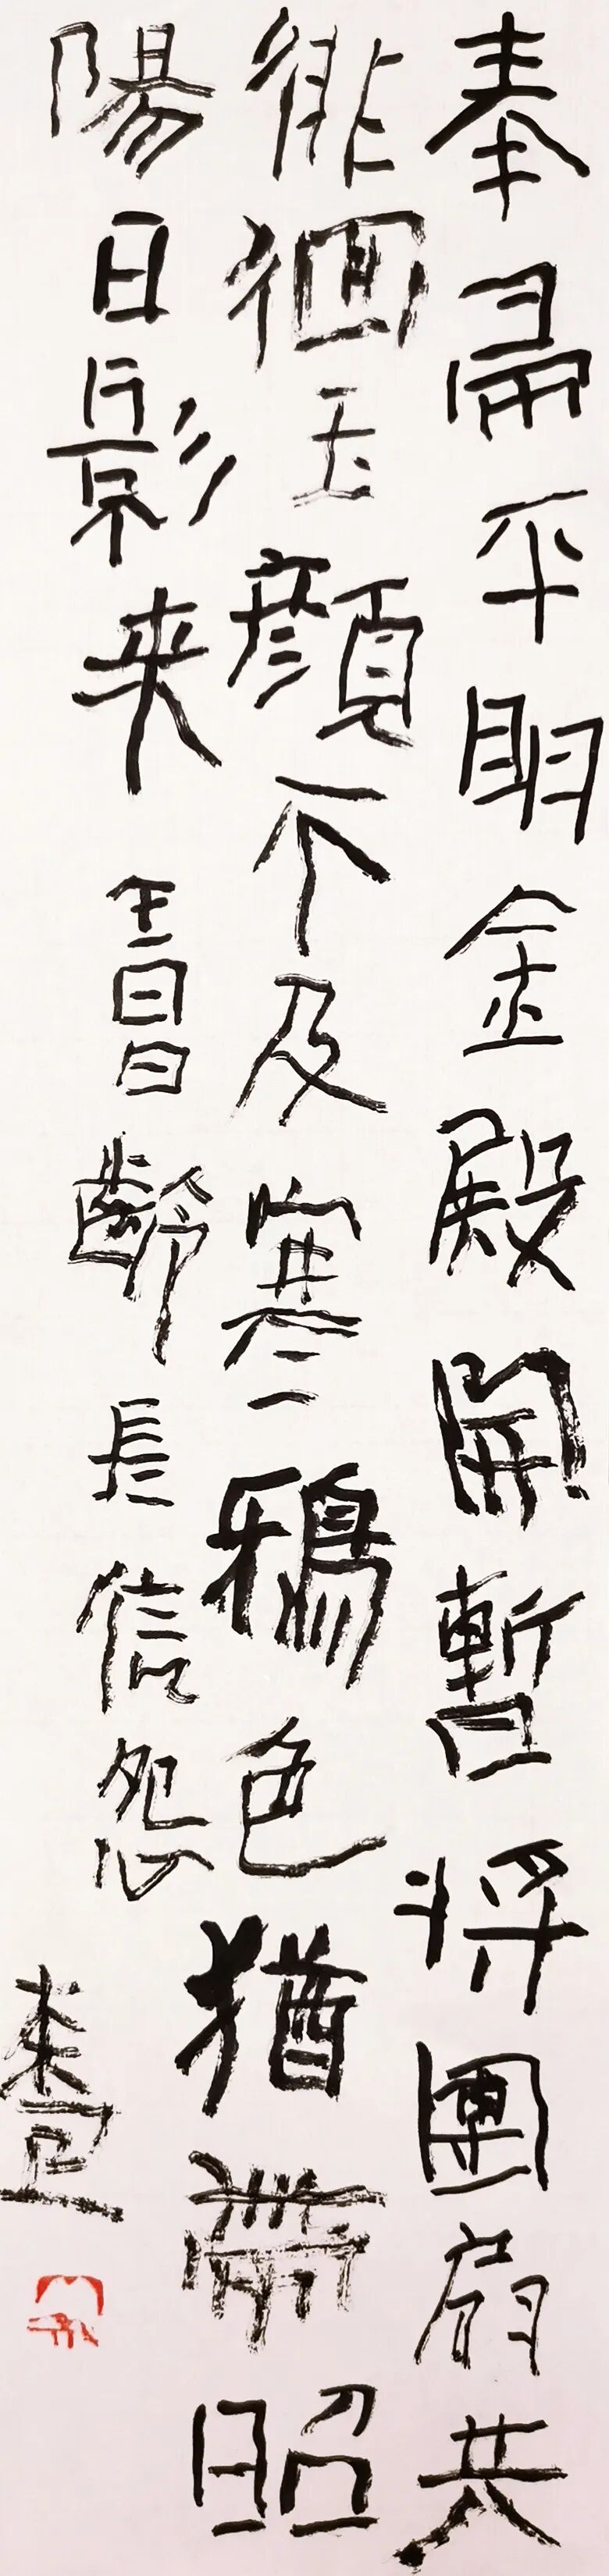 奉帚平明金殿開暫將團扇共
徘徊玉顏不及寒鴉色猶帶昭
陽日影来 王昌齡 長信怨